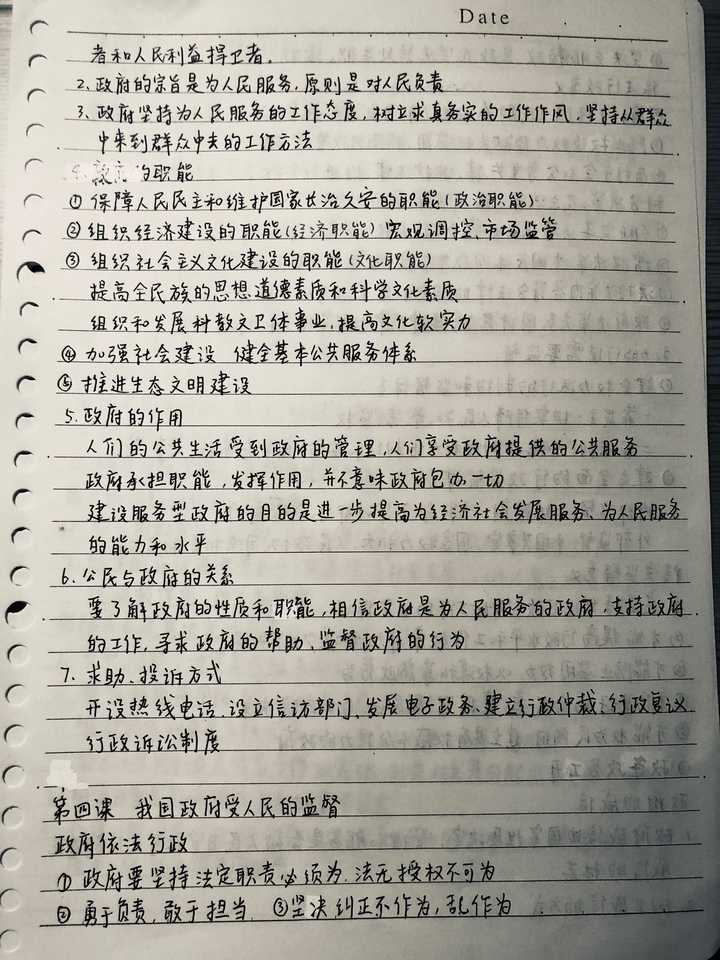 Date
者和人民利益捍卫者。
2、政府的宗旨是为人民服务,原则是对人民负责
3、政府坚持为人民服务的工作态度,树立求真务实的工作作风,坚持从群众
中来到群众中去的工作方法
政府的职能
① 保障人民民主和维护国家长治久安的职能(政治职能)
② 组织经济建设的职能(经济职能) 宏观调控、市场监管
③ 组织社会主义文化建设的职能(文化职能)
提高全民族的思想道德素质和科学文化素质
组织和发展科教文卫体事业,提高文化软实力
④ 加强社会建设 健全基本公共服务体系
⑤ 推进生态文明建设
5、政府的作用
人们的公共生活受到政府的管理,人们享受政府提供的公共服务
政府承担职能,发挥作用,并不意味政府包办一切
建设服务型政府的目的是进一步提高为经济社会发展服务、为人民服务
的能力和水平
6、公民与政府的关系
要了解政府的性质和职能,相信政府是为人民服务的政府,支持政府
的工作,寻求政府的帮助、监督政府的行为
7、求助、投诉方式
开设热线电话、设立信访部门、发展电子政务、建立行政仲裁、行政复议
行政诉讼制度
第四课 我国政府受人民的监督
政府依法行政
① 政府要坚持法定职责必须为、法无授权不可为
② 勇于负责,敢于担当、③坚决纠正不作为,乱作为